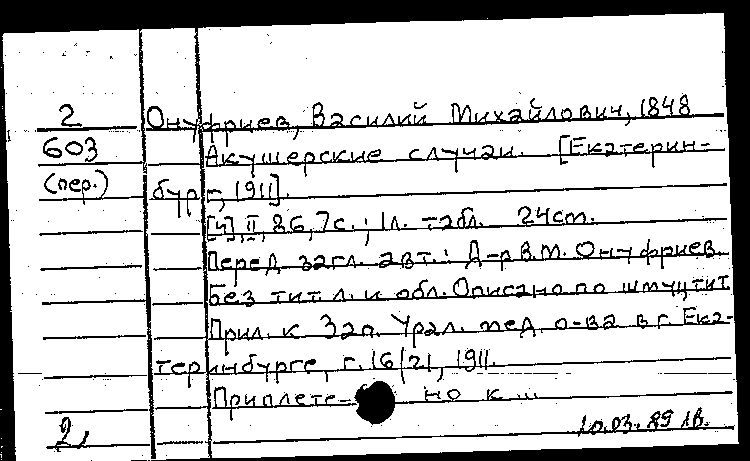 2 Онуфриев, Василий Михайлович, 1848
603 Акушерские случаи. [Екатерин-
(пер.) бург, 1911].
[4], II, 86, 7с.; 1л. табл. 24cm.
Перед загл. авт.: Д-р В.М. Онуфриев.
Без тит. л. и обл. Описано по шмуцтит
Прил. к Зап. Урал. мед. о-ва в г. Ека-
теринбурге, г. 16/21, 1911.
Приплете- но к ...
2, 10.03.89 1В.